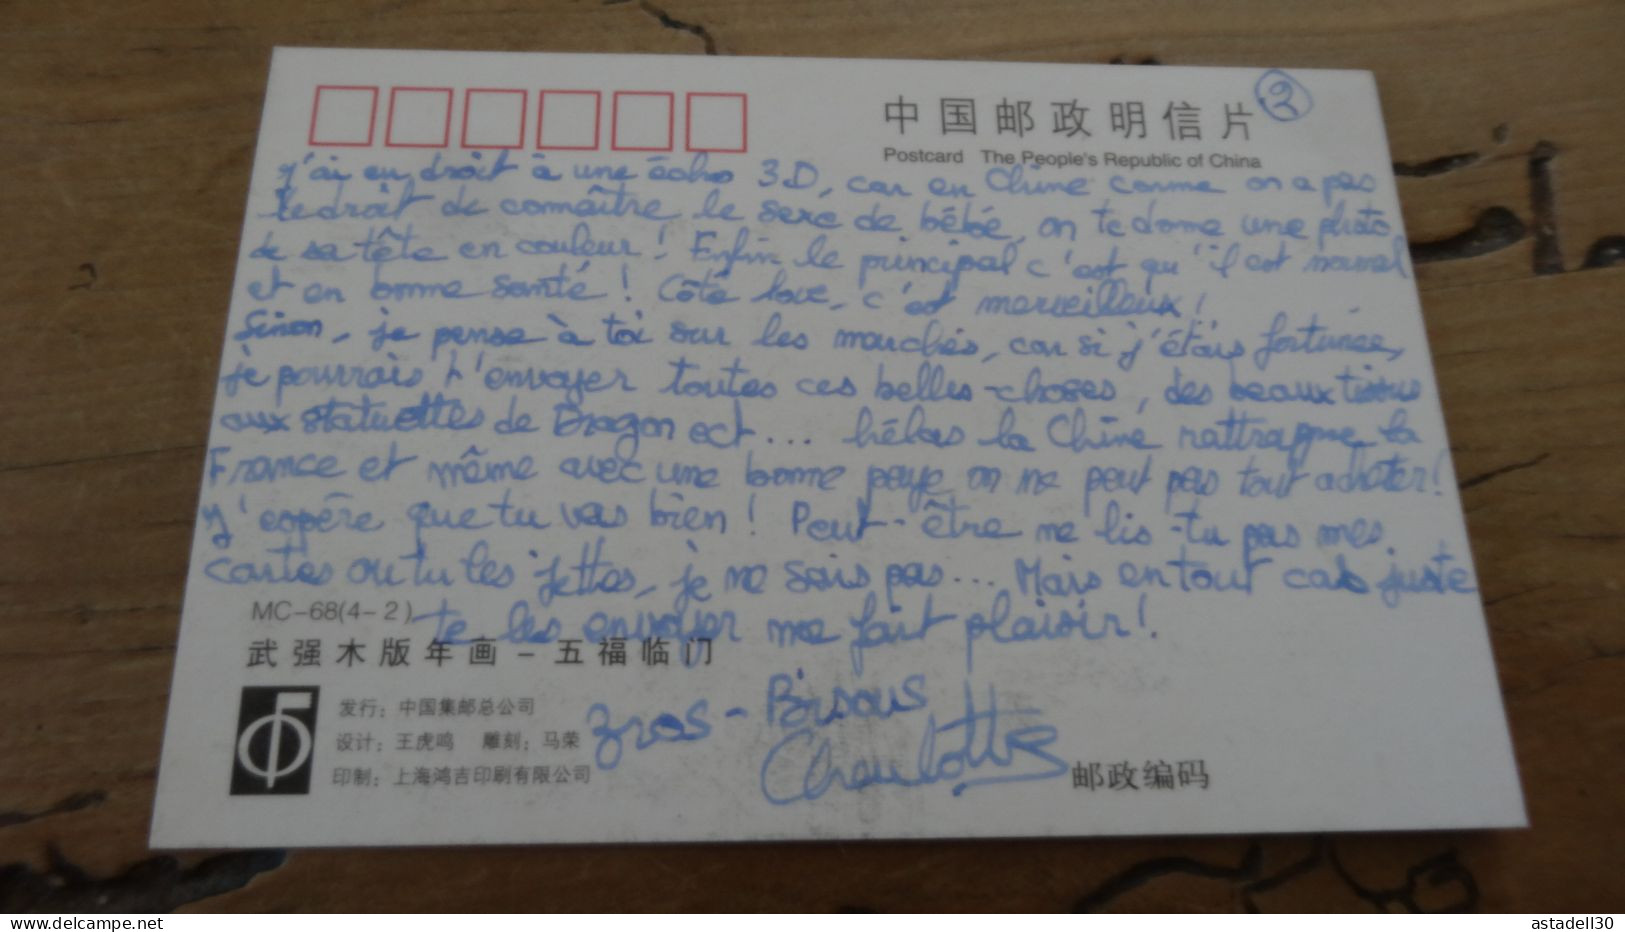 中国邮政明信片 2
Postcard The People's Republic of China
j'ai eu droit à une écho 3D, car en Chine comme on a pas
le droit de connaître le sexe de bébé, on te donne une photo
de sa tête en couleur ! Enfin le principal c'est qu'il est normal
et en bonne santé ! Côté love, c'est merveilleux !
Sinon, je pense à toi sur les marchés, car si j'étais fortunée,
je pourrais t'envoyer toutes ces belles choses, des beaux tissus
aux statuettes de Dragon ect... hélas la Chine rattrappe la
France et même avec une bonne paye on ne peut pas tout acheter !
J'espère que tu vas bien ! Peut-être ne lis-tu pas mes
cartes ou tu les jettes, je ne sais pas... Mais en tout cas juste
te les envoyer me fait plaisir !
MC-68(4-2)
武强木版年画－五福临门
Gros-Bisous
Charlotte
发行：中国集邮总公司
设计：王虎鸣 雕刻：马荣
印制：上海鸿吉印刷有限公司
邮政编码
astadell30